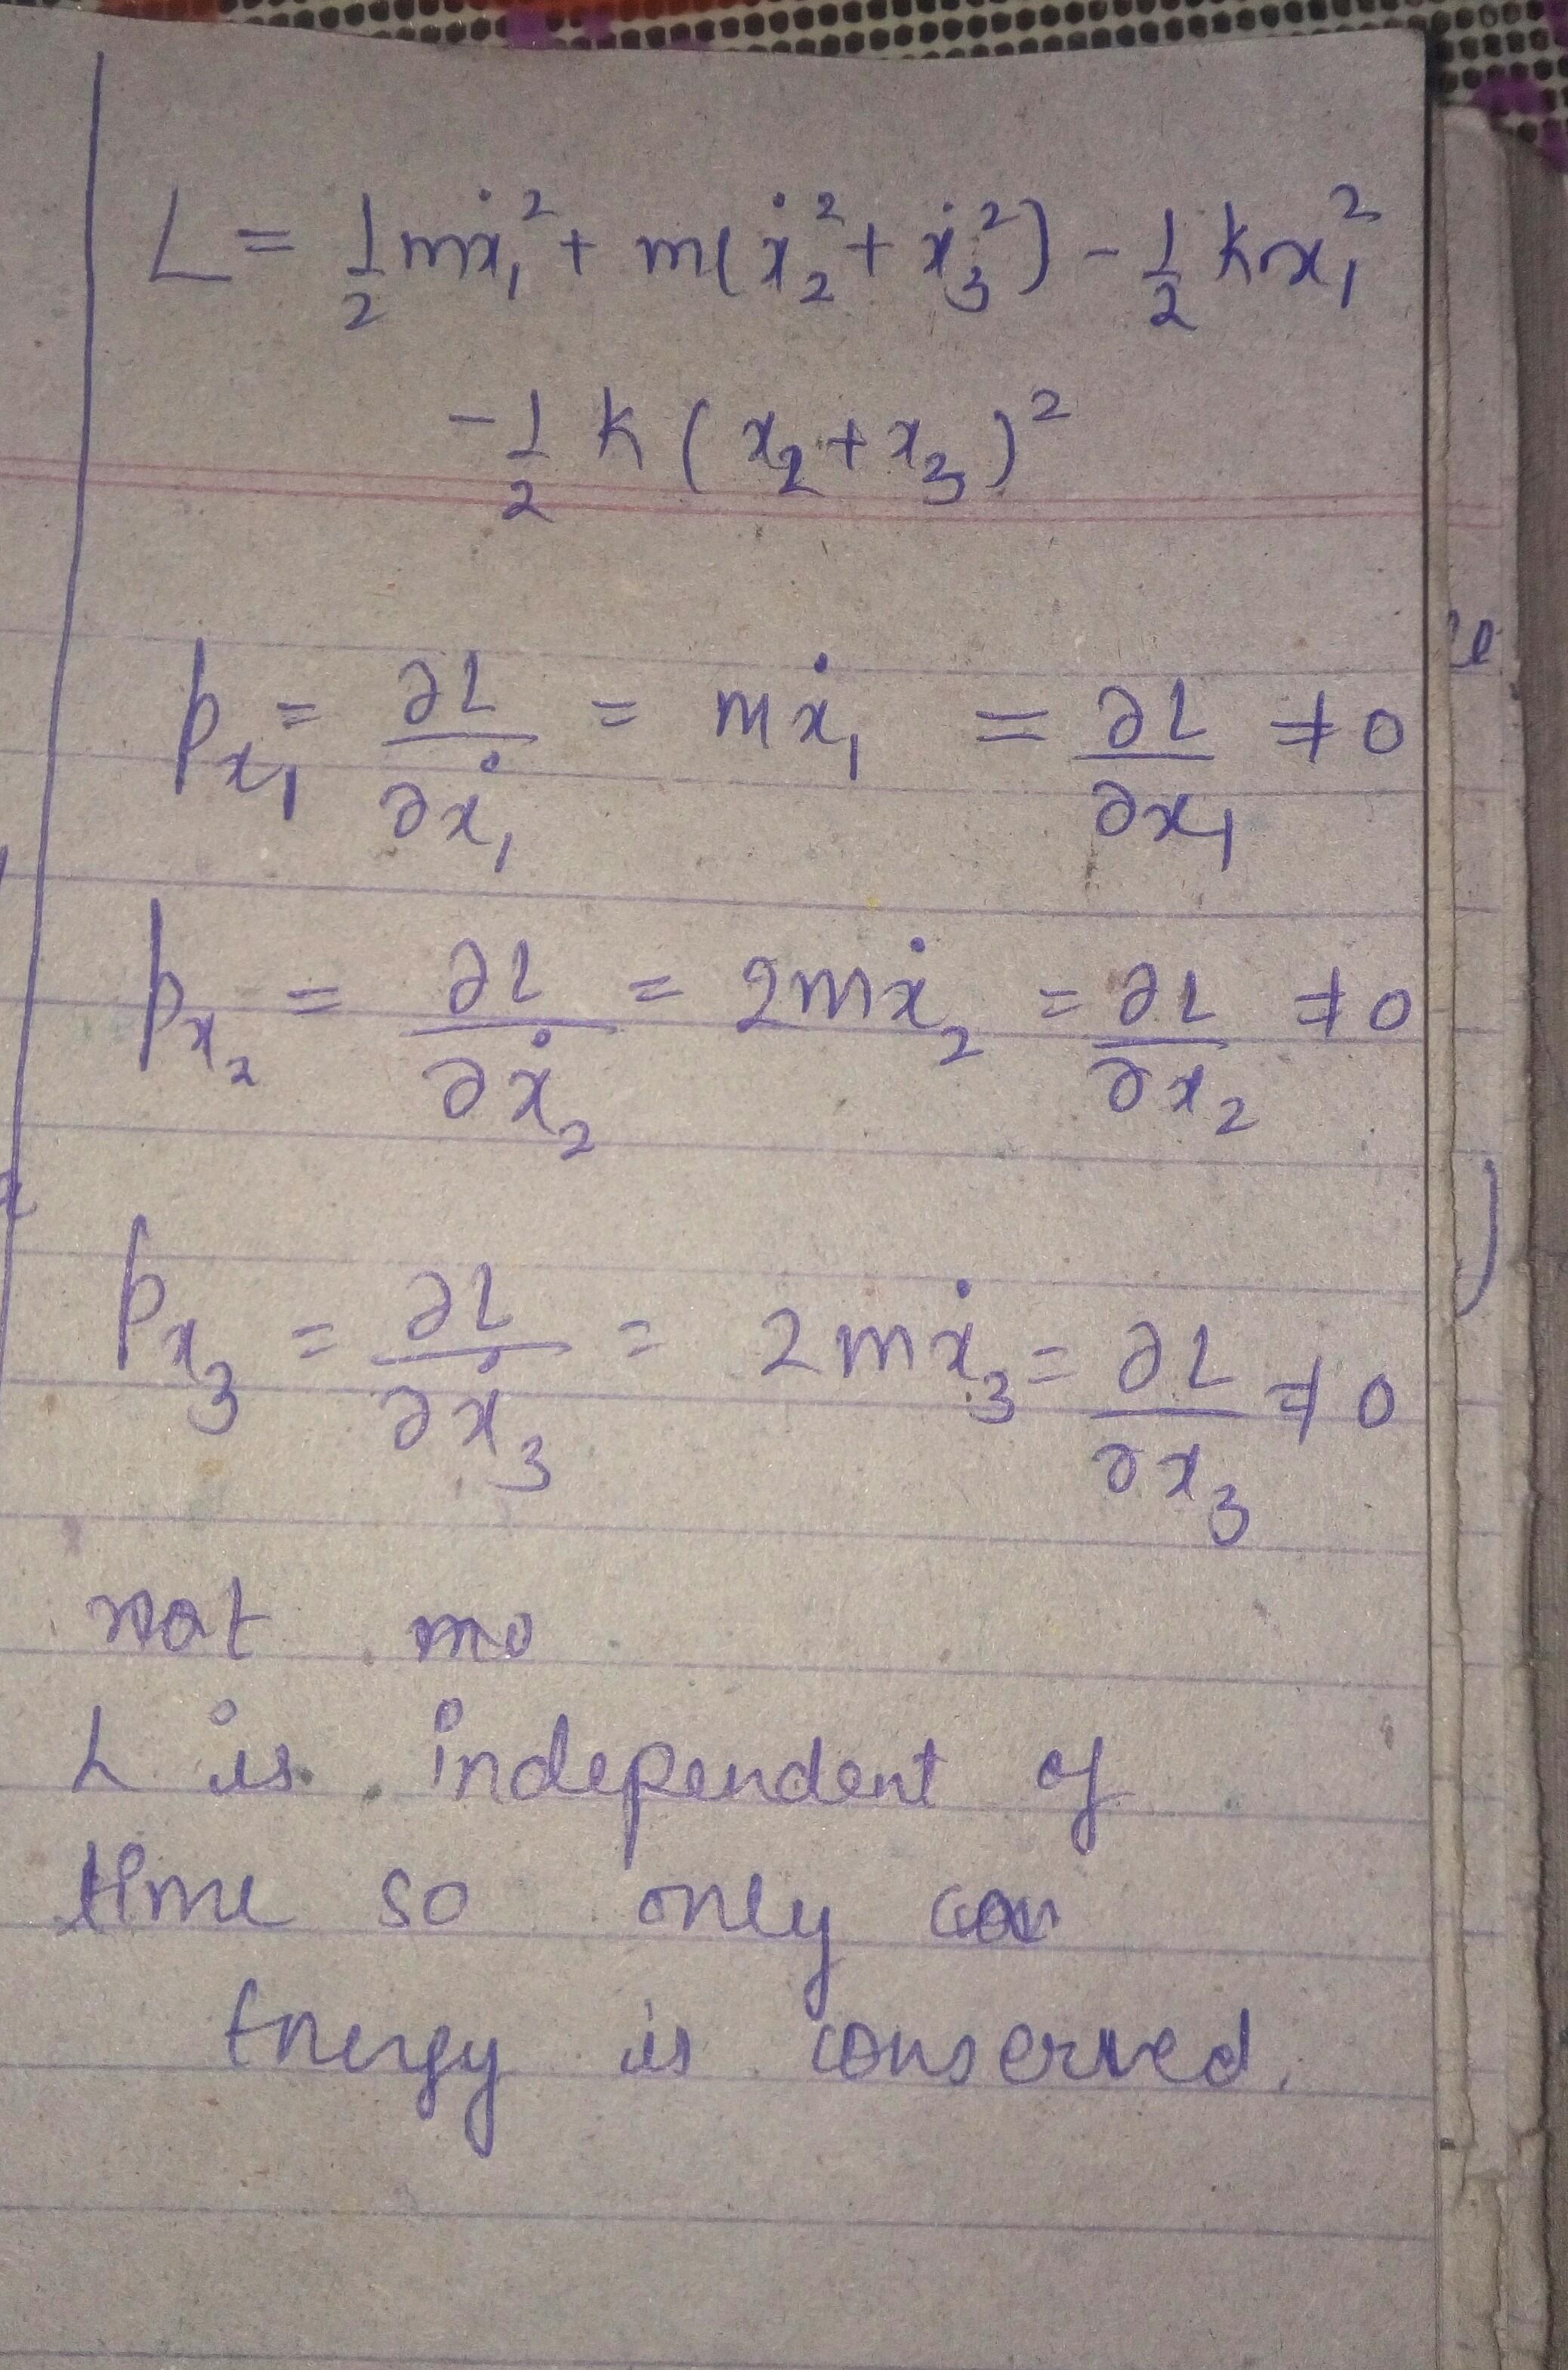 L = 1/2 mẋ₁² + m(ẋ₂² + ẋ₃²) - 1/2 kx₁²
- 1/2 k(x₂ + x₃)²
pₓ₁ = ∂L/∂ẋ₁ = mẋ₁ = ∂L/∂x₁ ≠ 0
pₓ₂ = ∂L/∂ẋ₂ = 2mẋ₂ = ∂L/∂x₂ ≠ 0
pₓ₃ = ∂L/∂ẋ₃ = 2mẋ₃ = ∂L/∂x₃ ≠ 0
not mo
L is independent of
time so only
Energy is conserved.